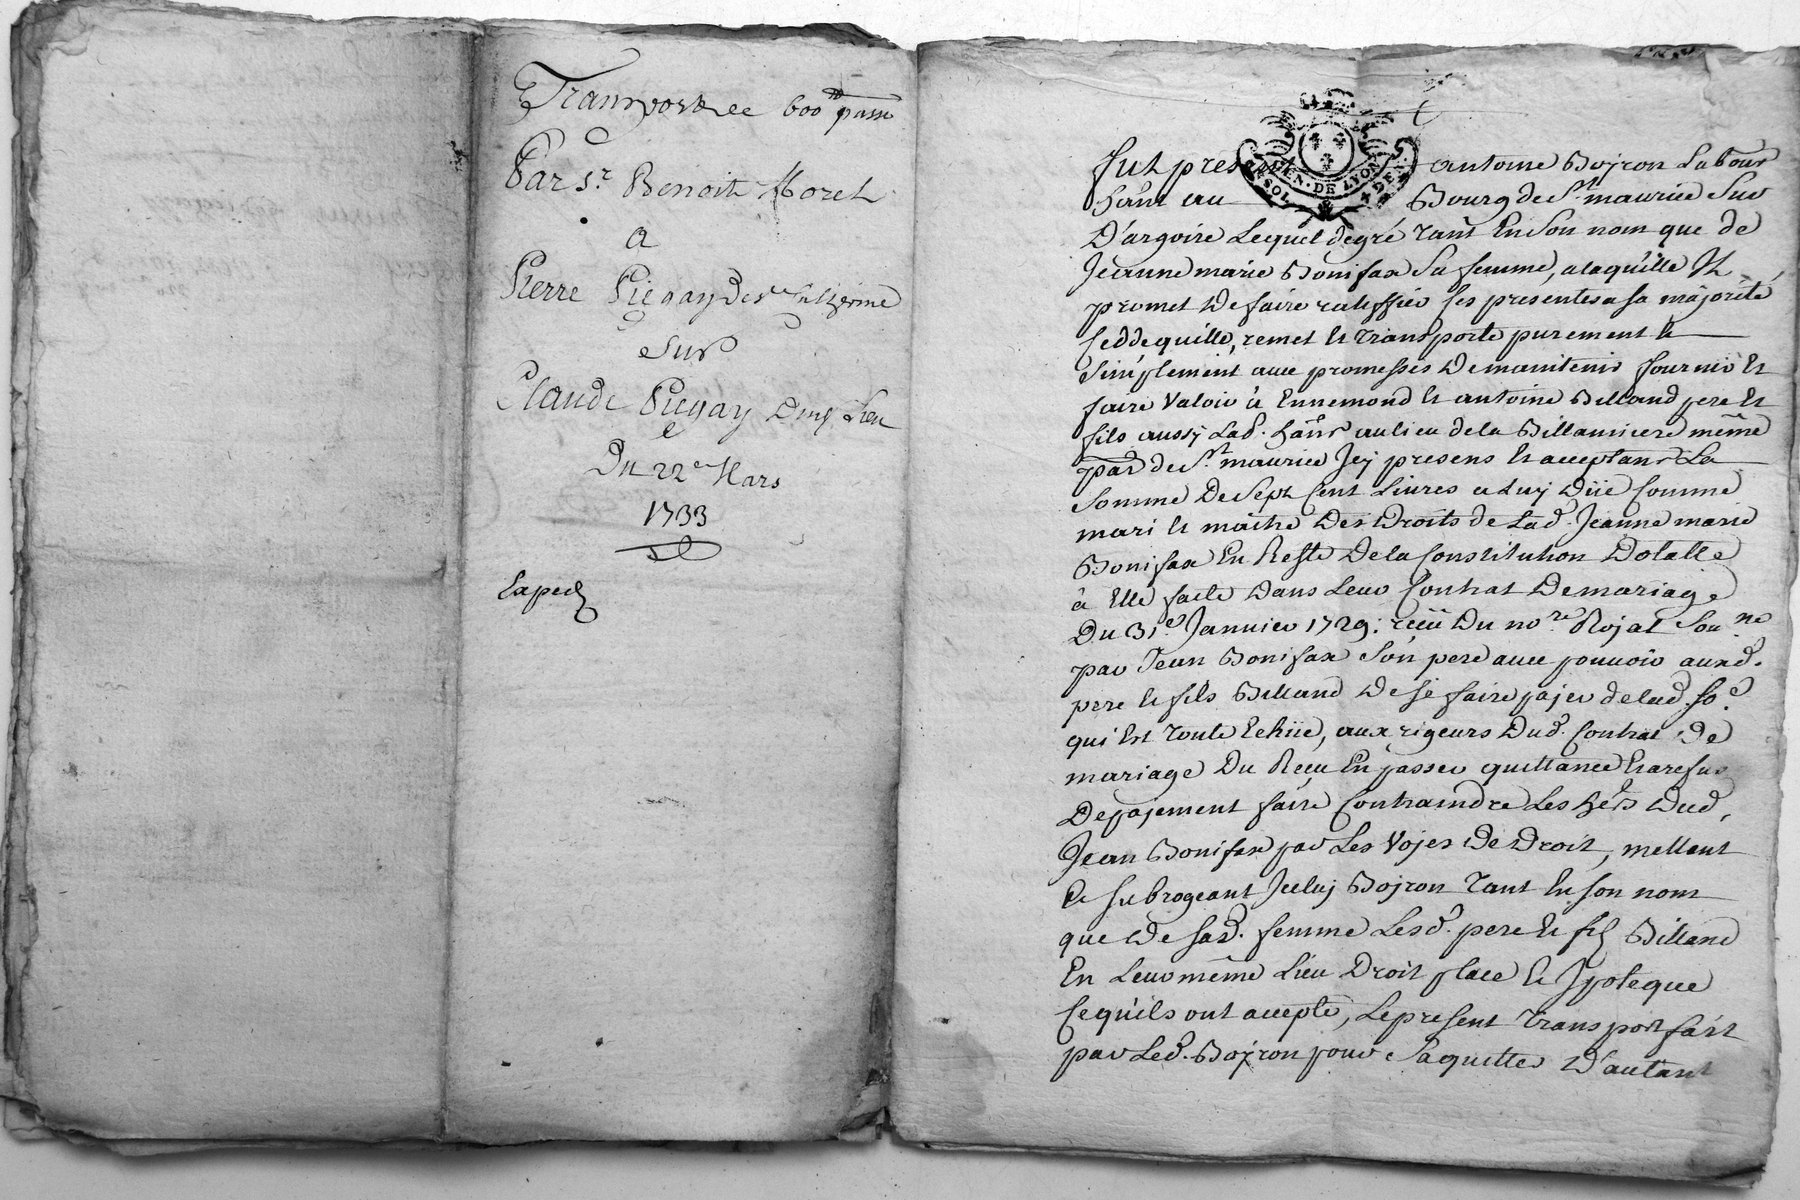 Transport de 600ᵗᵗ passé
Par Sr. Benoit Morel
a
Pierre Piegay de Sᵗ
Sur
Claude Piegay Dud Lieu
Du 22e Mars
1733
Exped
GEN. DE LYON
Fut present antoine Bojron Labour
hãnt au Bourg de St. maurice Sur
D'argoire Lequel degré tant En Son nom que de
Jeanne marie Bonifaxe Sa femme, a laquelle Il
promet De faire ratiffier ses presentes a sa majorité
Cedde quitte, remet et transporte purement et
Simplement avec promesses De maintenir fournir et
faire Valoir à Ennemond et antoine Billand pere et
fils aussy Lab. hãnt au lieu de la Billaniere même
par de St. maurice Icy presens et acceptans La
Somme De Sept Cent Livres a Luy Düe Comme
mari et maitre Des Droits de Lad. Jeanne marie
Bonifaxe En Reste De la Constitution Dotalle
à Elle faite Dans Leur Contrat De mariage
Du 31e Janvier 1729: reçu Du nore Rojal Sou.ne
par Jean Bonifaxe Son pere avec pouvoir auxd.
pere et fils Billand De se faire pajer de lad. So.e
qui Est toute Echüe, aux rigeurs Dud. Contrat De
mariage Du Recu En passer quittance Et a refus
De pajement faire Contraindre Les hers Dud.
Jean Bonifaxe par Les Vojes De Droit, mettant
Et Subrogeant Iceluj Bojron tant En son nom
que De Sad. femme Lesd. pere et fils Billand
En Leur même Lieu Droit place Et Ipoteque
Ce qu'ils ont accepté, Le present transport fait
par Led. Bojron pour S'aquitter D'autant